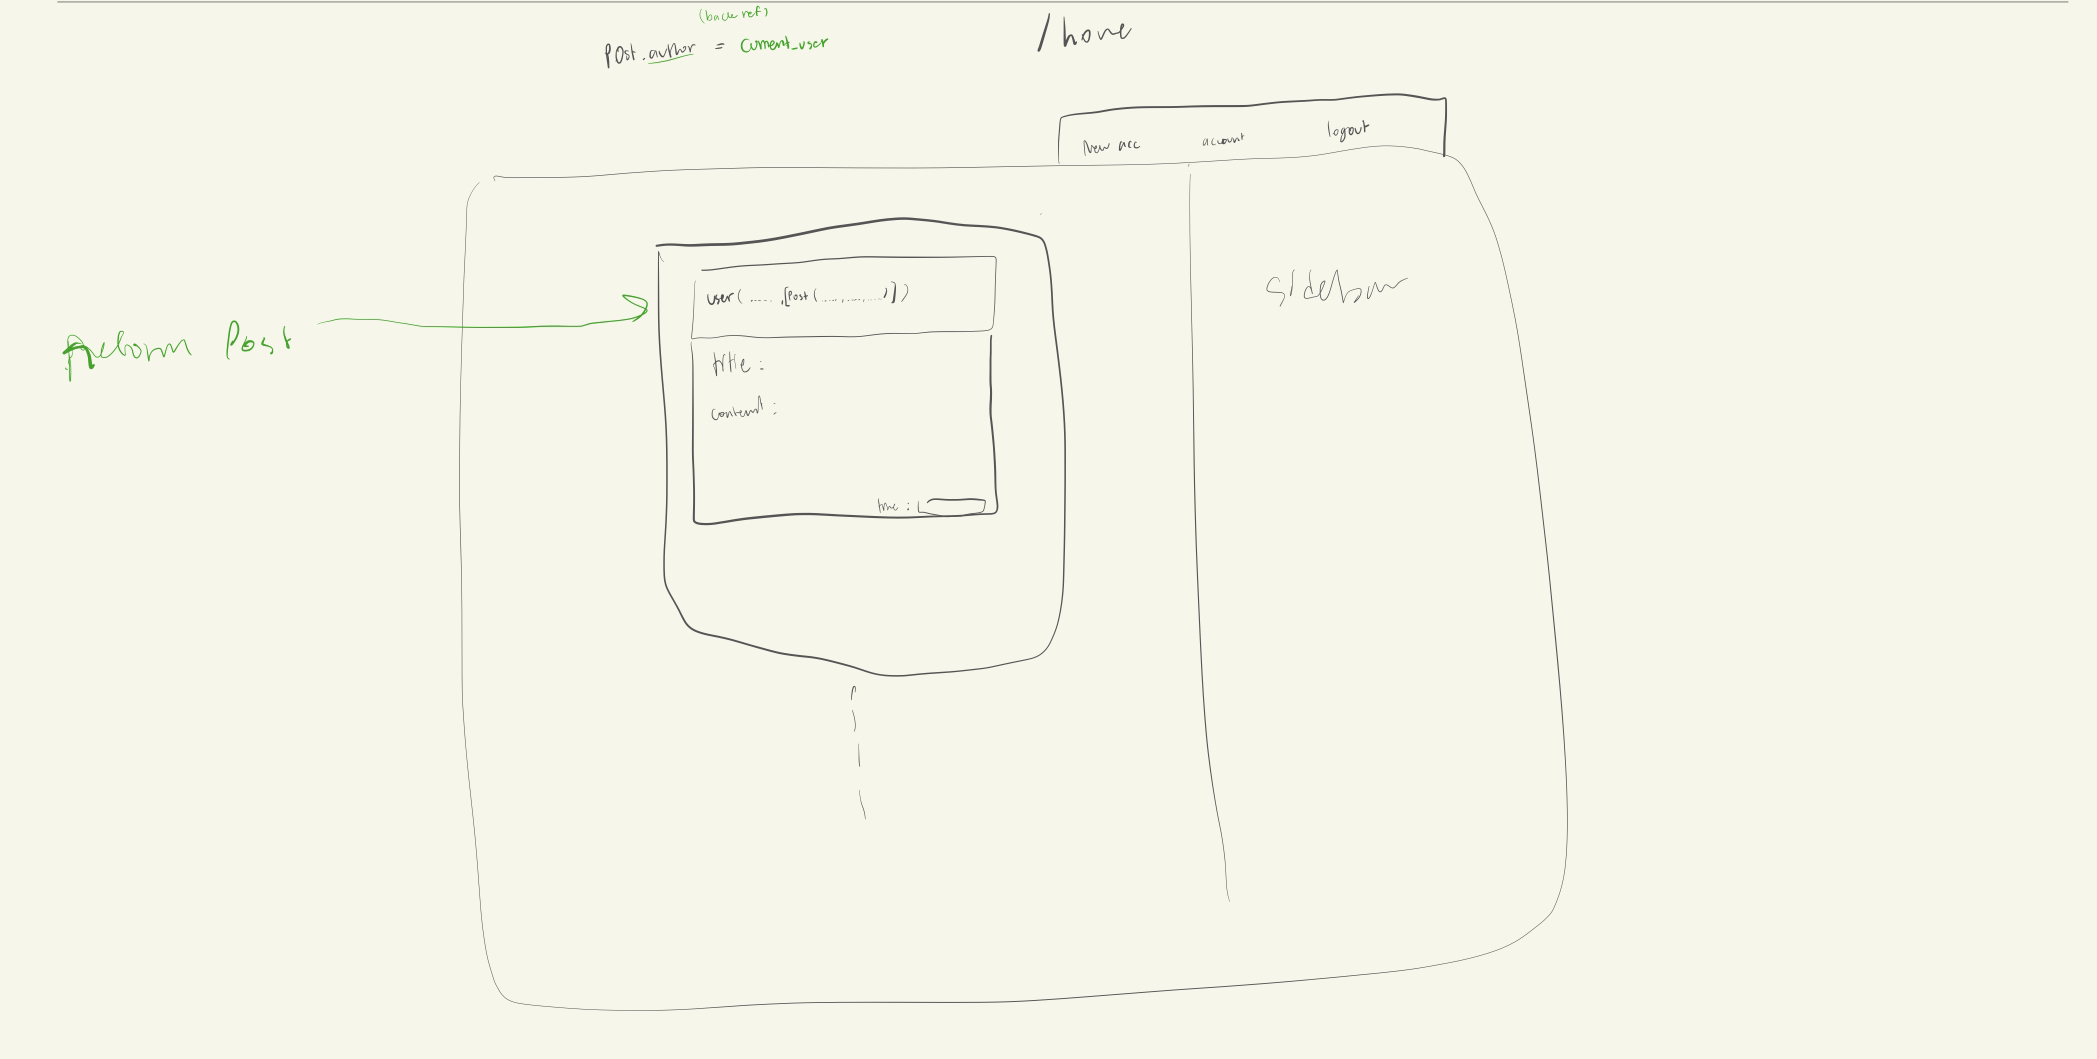 (back ref)
Post.author = current_user
/home
New acc account logout
user( ..... ,[Post (....,....,....)])
sidebar
Post
title :
content :
time :